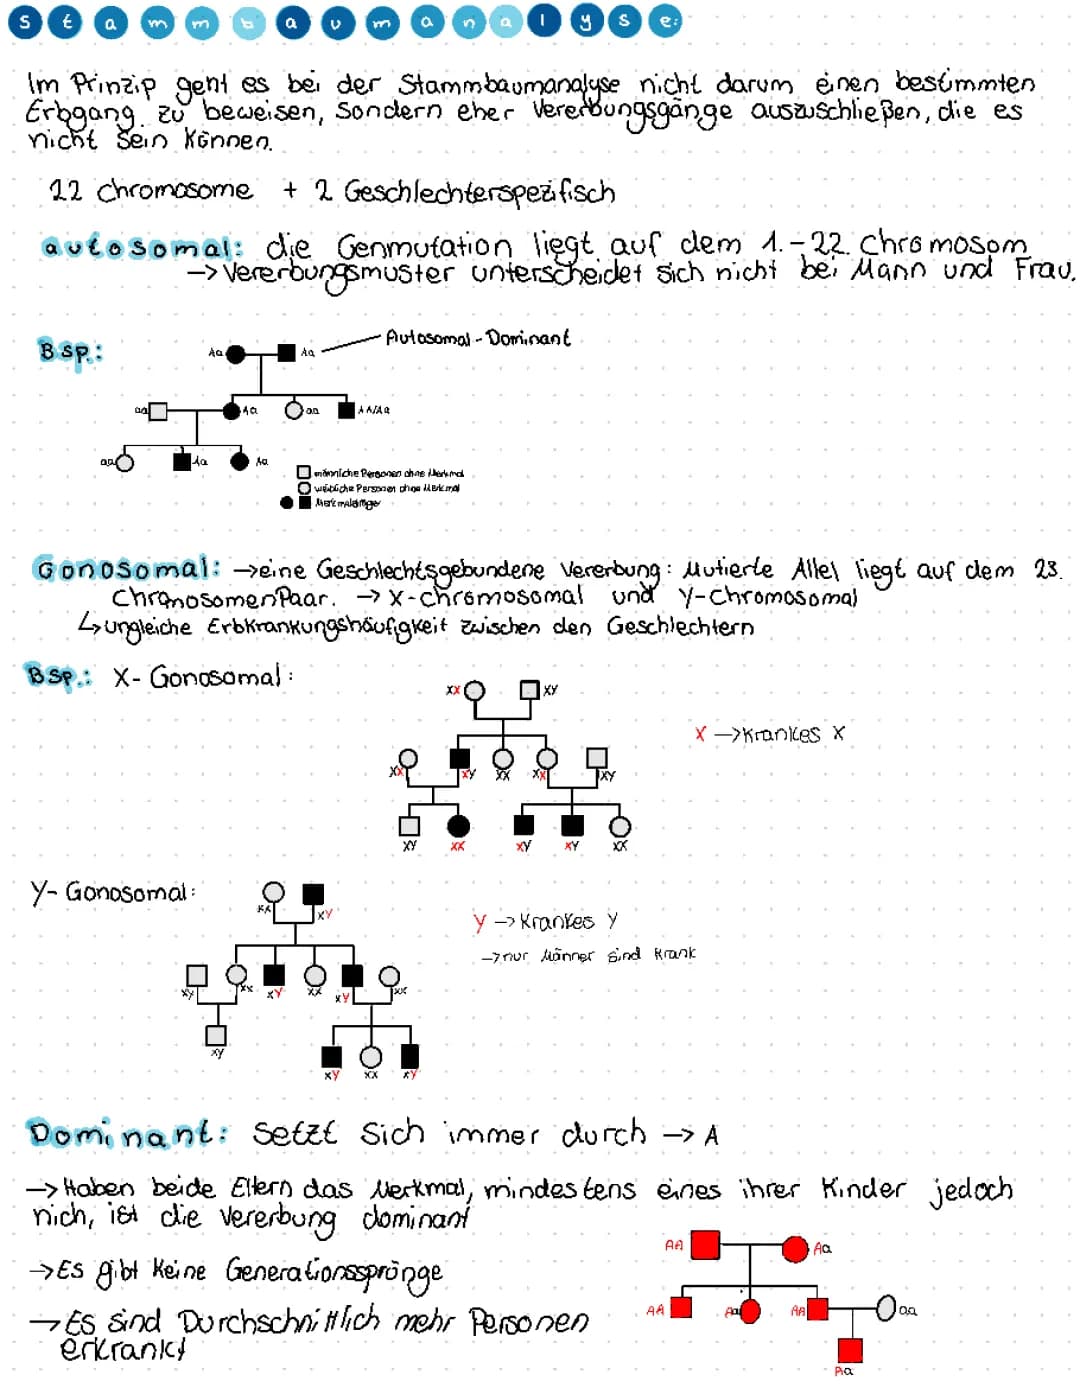 Stammbaumanalyse:
Im Prinzip geht es bei der Stammbaumanalyse nicht darum einen bestimmten
Erbgang zu beweisen, sondern eher Vererbungsgänge auszuschließen, die es
nicht sein können.
22 chromosome + 2 Geschlechterspezifisch
autosomal: die Genmutation liegt auf dem 1.-22. Chromosom
-> Vererbungsmuster unterscheidet sich nicht bei Mann und Frau.
Bsp.:
Autosomal-Dominant
Aa Aa
aa Aa aa AA/Aa
aa Aa Aa
männliche Personen ohne Merkmal
weibliche Personen ohne Merkmal
Merkmalsträger
Gonosomal: ->eine Geschlechtsgebundene Vererbung: Mutierte Allel liegt auf dem 23.
ChromosomenPaar. -> X-chromosomal und Y-Chromosomal
↳ungleiche Erbkrankungshäufigkeit zwischen den Geschlechtern
Bsp.: X-Gonosomal:
XX XY
X ->Krankes X
XX XY XX XX XY
XY XX XY XY XX
Y-Gonosomal:
XX XY
Y -> Krankes Y
->nur Männer sind krank
XY XX XY XX XY XX
XY
XY XX XY
Dominant: setzt sich immer durch -> A
-> Haben beide Eltern das Merkmal, mindestens eines ihrer Kinder jedoch
nich, ist die Vererbung dominant
->Es gibt keine Generationssprünge
->Es sind Durchschnittlich mehr Personen
erkrankt
AA Aa
AA Aa AA aa
Aa